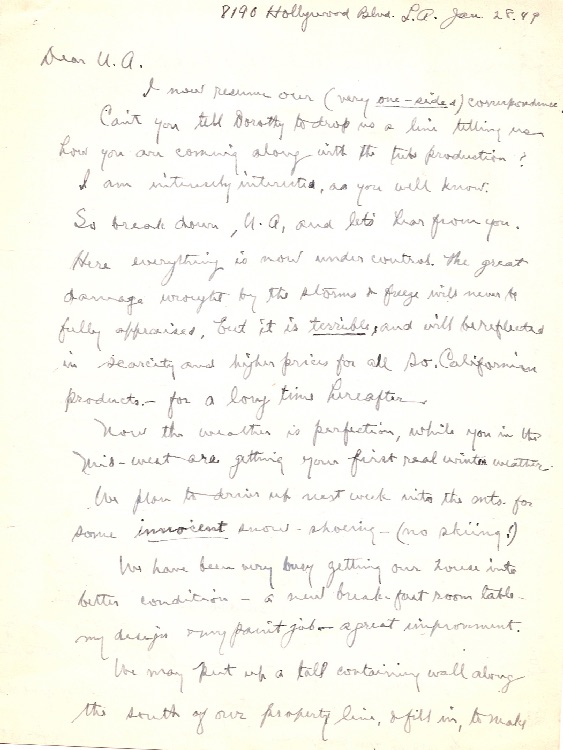 8190 Hollywood Blvd. L.A. Jan. 28.49
Dear U.A.
I now resume our (very one-sided) correspondence.
Can't you tell Dorothy to drop us a line telling us
how you are coming along with the tube production?
I am intensely interested, as you well know.
So break down, U.A, and let's hear from you.
Here everything is now under control. The great
damage wrought by the storms & freeze will never be
fully appraised, but it is terrible, and will be reflected
in scarcity and higher prices for all So. California
products.- for a long time hereafter.
Now the weather is perfection, while you in the
Mid-west are getting your first real winter weather.
We plan to drive up next week into the mts. for
some innocent snow-shoeing - (no skiing!)
We have been very busy getting our house into
better condition - a new break-fast room table -
my design & my paint job - a great improvement.
We may put up a tall containing wall along
the south of our property line, & fill in, to make